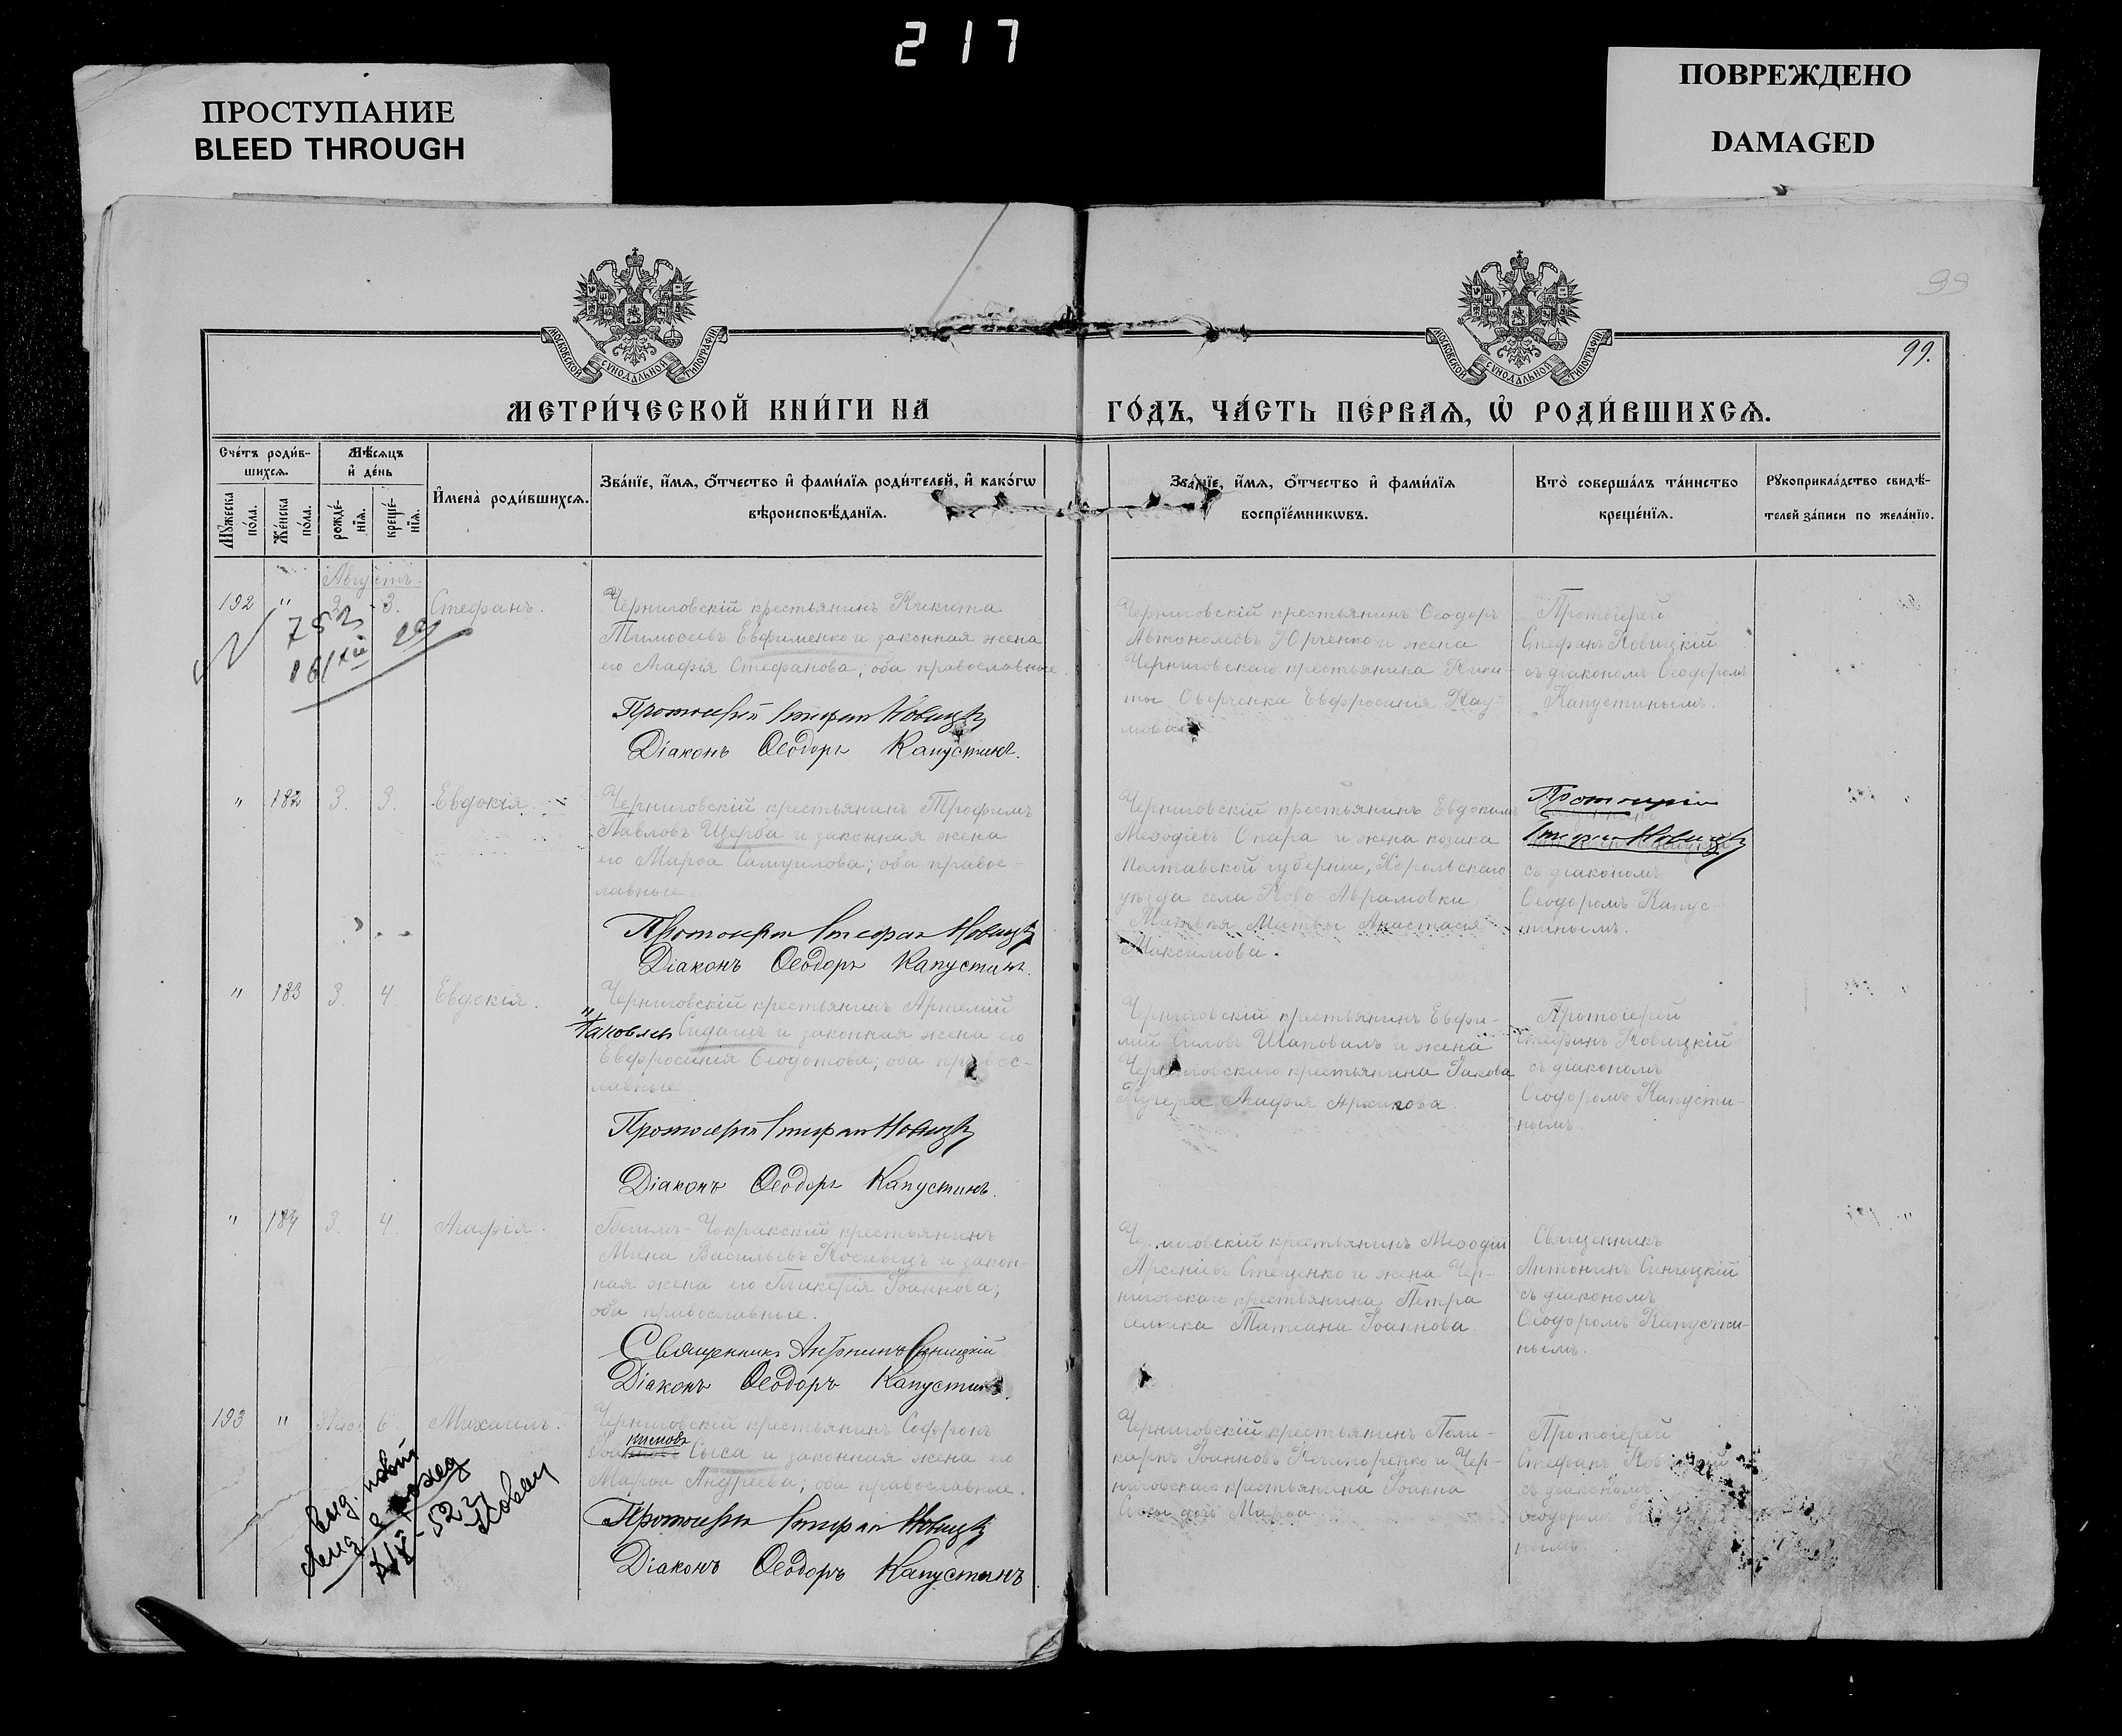 217
ПРОСТУПАНИЕ
BLEED THROUGH
ПОВРЕЖДЕНО
DAMAGED
99
99.
МОСКОВСКОЙ СѴНОДАЛЬНОЙ ТИПОГРАФІИ
МОСКОВСКОЙ СѴНОДАЛЬНОЙ ТИПОГРАФІИ
МЕТРИ́ЧЕСКОЙ КНИ́ГИ НА
ГО́ДЪ, ЧА́СТЬ ПЕ́РВАѦ, Ѡ҆ РОДИ́ВШИХСѦ.
Сче́тъ роди́в-
шихсѧ.
Мѣ́сѧцъ
и҆ де́нь
Мꙋ́жеска
по́ла.
Же́нска
по́ла.
рожде́-
нїѧ.
креще́-
нїѧ.
И҆мена̀ роди́вшихсѧ.
Зва́нїе, и҆́мѧ, ѻ҆́тчество и҆ фами́лїѧ роди́телей, и҆ како́гѡ
вѣроисповѣ́данїѧ.
Зва́нїе, и҆́мѧ, ѻ҆́тчество и҆ фами́лїѧ
воспрїе́мникѡвъ.
Кто̀ соверша́лъ та́инство
креще́нїѧ.
Рꙋкоприкла́дство свидѣ́-
телей за́писи по жела́нїю.
Августъ.
192 " 3. Стефанъ.
Черниговскій крестьянинъ Никита
Тимоѳеевъ Евфименко и законная жена
его Агафія Стефанова; оба православные.
Протоіерей Стефанъ Новицкій
Діаконъ Ѳеодоръ Капустинъ.
Черниговскій крестьянинъ Ѳеодоръ
Автономовъ Юрченко и жена
Черниговскаго крестьянина Ники-
ты Евфросинія Нау-
мова
Протоіерей
Стефанъ Новицкій
съ діакономъ Ѳеодоромъ
Капустинымъ.
" 182 3. 3. Евдокія.
Черниговскій крестьянинъ Трофимъ
Павловъ Щерба и законная жена
его Марѳа Самуилова; оба правос-
лавные.
Протоіерей Стефанъ Новицкій
Діаконъ Ѳеодоръ Капустинъ.
Черниговскій крестьянинъ Евдокимъ
Меѳодіевъ Опара и жена козака
Полтавской губерніи, Хорольскаго
уѣзда села Ново-Аврамовки
Анастасія
Максимова.
Протоіерей
Стефанъ Новицкій
съ діакономъ
Ѳеодоромъ Капус-
тинымъ.
" 183 3. 4. Евдокія.
Черниговскій крестьянинъ Артемій
Іаковлевъ Сидашъ и законная жена его
Евфросинія Ѳеодотова; оба правос-
лавные.
Протоіерей Стефанъ Новицкій
Діаконъ Ѳеодоръ Капустинъ.
Черниговскій крестьянинъ Евфи-
мій Силовъ Шаповалъ и жена
Черниговскаго крестьянина Іакова
Кучера Агафія Архипова.
Протоіерей
Стефанъ Новицкій
съ діакономъ
Ѳеодоромъ Капусти-
нымъ.
" 184 3. 4. Агафія.
Бегимъ-Чокракскій крестьянинъ
Мина Васильевъ Косивецъ и закон-
ная жена его Гликерія Іоаннова;
оба православные.
Священникъ Антонинъ Синицкій
Діаконъ Ѳеодоръ Капустинъ.
Черниговскій крестьянинъ Меѳодій
Арсеніевъ Стеценко и жена Чер-
ниговскаго крестьянина Петра
Татіана Іоаннова.
Священникъ
Антонинъ Синицкій
съ діакономъ
Ѳеодоромъ Капусти-
нымъ.
193 " 6. Михаилъ.
Черниговскій крестьянинъ Софронъ
Сыса и законная жена его
Марѳа Андреева; оба православные.
Протоіерей Стефанъ Новицкій
Діаконъ Ѳеодоръ Капустинъ
Черниговскій крестьянинъ Поли-
карпъ Іоанновъ Нечипоренко и Чер-
ниговскаго крестьянина Іоанна
Сысы дочь Марѳа
Протоіерей
Стефанъ
съ діакономъ
Ѳеодоромъ
нымъ.